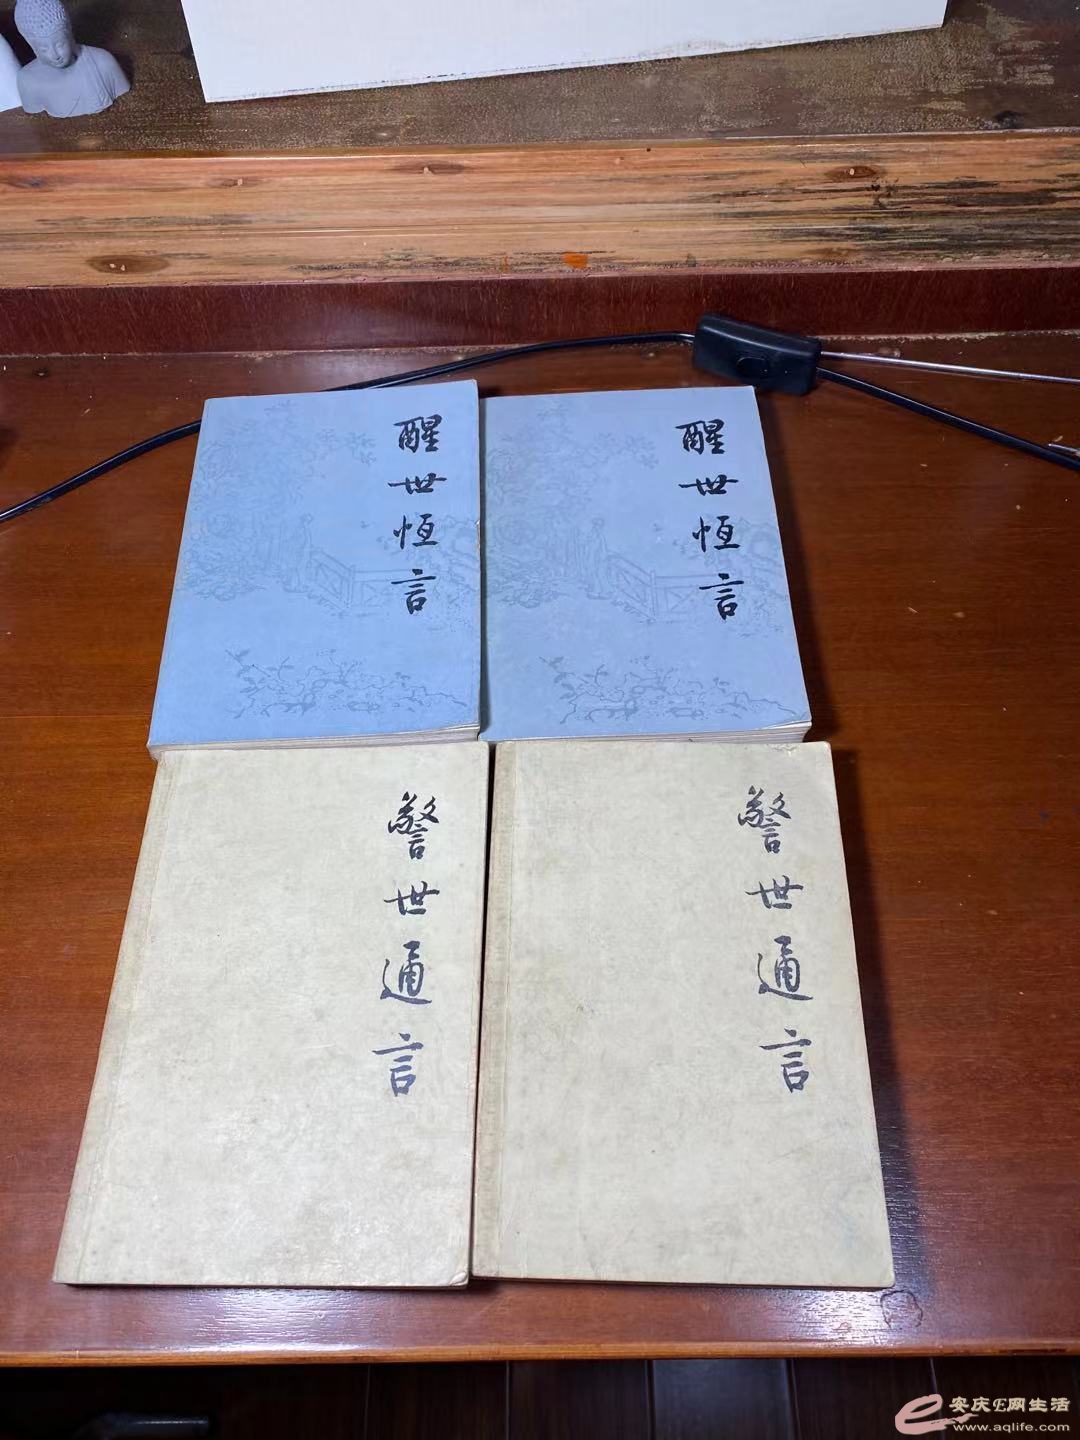 醒世恆言
醒世恆言
警世通言
警世通言
安庆E网生活
www.aqlife.com